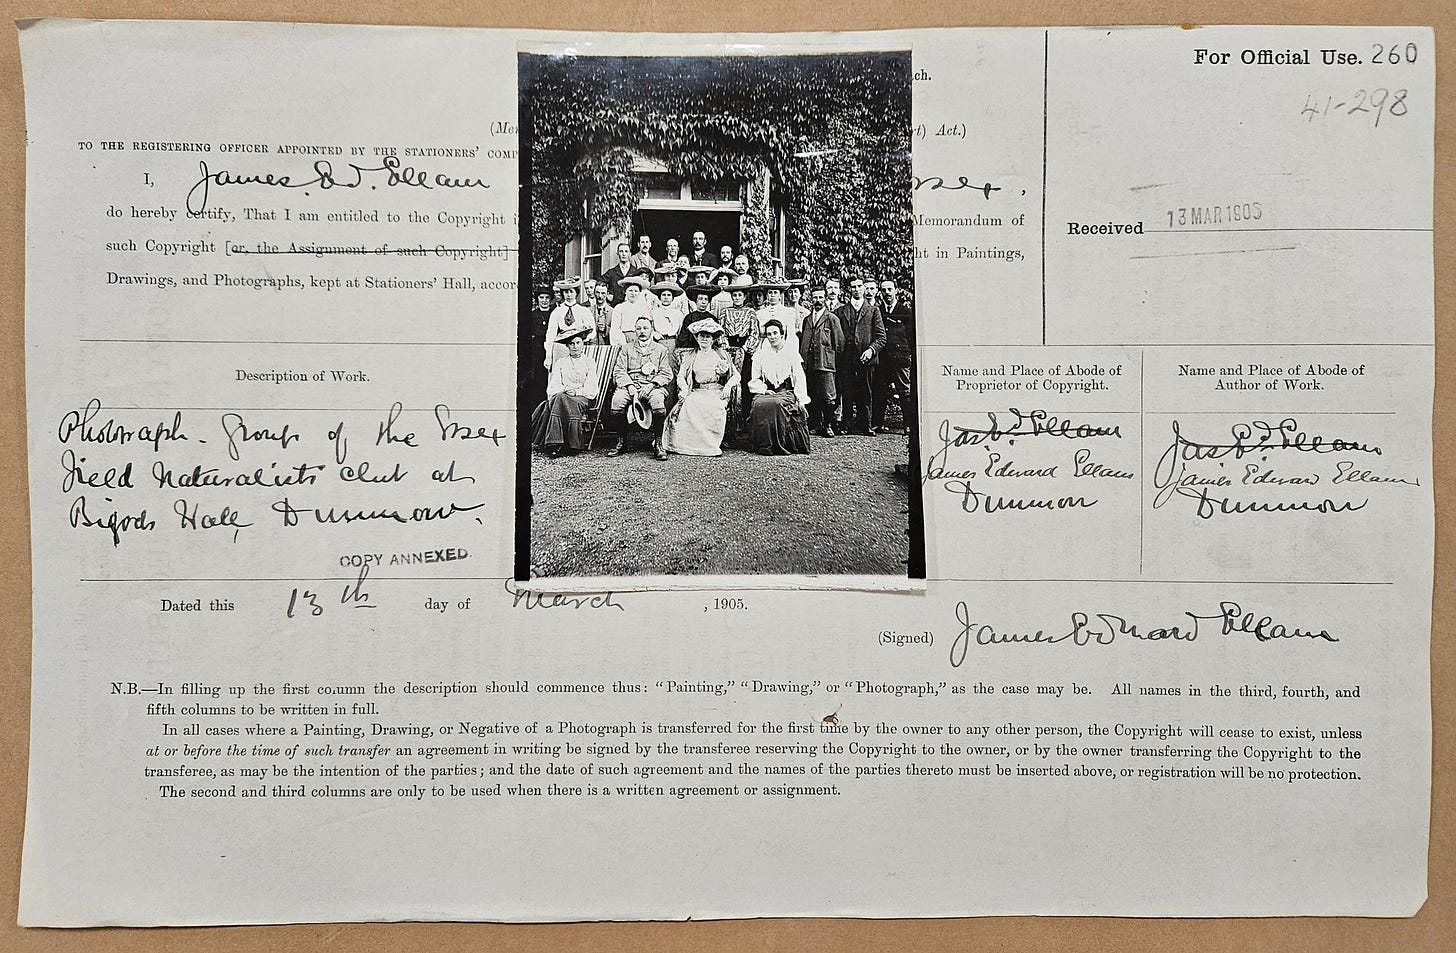 For Official Use. 260
41-298
ch.
(Mem
t) Act.)
TO THE REGISTERING OFFICER APPOINTED BY THE STATIONERS' COMP
I, James Ed. Ellam
ssex,
do hereby certify, That I am entitled to the Copyright i
Memorandum of
such Copyright [or, the Assignment of such Copyright]
ht in Paintings,
Drawings, and Photographs, kept at Stationers' Hall, accor
Received 13 MAR 1905
Description of Work.
Name and Place of Abode of
Proprietor of Copyright.
Name and Place of Abode of
Author of Work.
Photograph - Group of the Essex
Field Naturalists club at
Bigods Hall, Dunmow.
COPY ANNEXED.
Jas Ed. Ellam
James Edward Ellam
Dunmow
Jas Ed. Ellam
James Edward Ellam
Dunmow
Dated this 13th day of March, 1905.
(Signed) James Edward Ellam
N.B.—In filling up the first column the description should commence thus: "Painting," "Drawing," or "Photograph," as the case may be. All names in the third, fourth, and
fifth columns to be written in full.
In all cases where a Painting, Drawing, or Negative of a Photograph is transferred for the first time by the owner to any other person, the Copyright will cease to exist, unless
at or before the time of such transfer an agreement in writing be signed by the transferee reserving the Copyright to the owner, or by the owner transferring the Copyright to the
transferee, as may be the intention of the parties; and the date of such agreement and the names of the parties thereto must be inserted above, or registration will be no protection.
The second and third columns are only to be used when there is a written agreement or assignment.